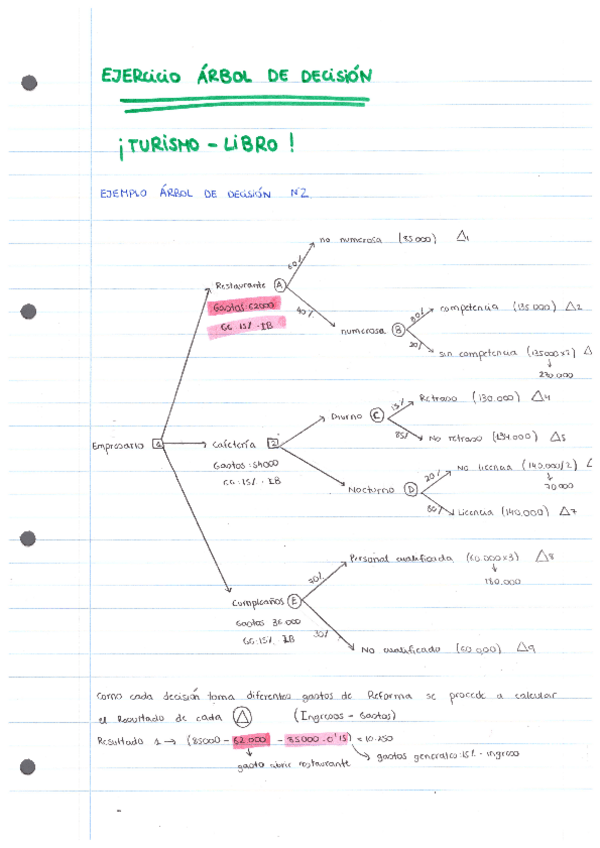 EJERCICIO ÁRBOL DE DECISIÓN
¡TURISMO - LIBRO!
EJEMPLO ÁRBOL DE DECISIÓN Nº2
no numerosa (85000) △1
60%
Restaurante A
Gastos: 62000
GG 15% · IB
40%
numerosa B
80%
competencia (135000) △2
20%
sin competencia (135000x2) △
↓
270000
Empresario 1
Cafetería 2
Gastos: 54000
GG: 15% · IB
Diurno C
15%
Retraso (130.000) △4
85%
No retraso (134000) △5
Nocturno D
20%
No licencia (140.000/2) △
↓
70000
80%
Licencia (140,000) △7
Cumpleaños E
Gastos 36000
GG: 15% · IB
70%
Personal cualificado (60.000x3) △8
↓
180.000
30%
No cualificado (60.000) △9
Como cada decisión toma diferentes gastos de Reforma se procede a calcular
el Resultado de cada △ (Ingresos - Gastos)
Resultado 1 → (85000 - 62.000 - 85000 · 0'15) = 10.250
↓ gasto abrir restaurante
→ gastos generales: 15% · ingreso